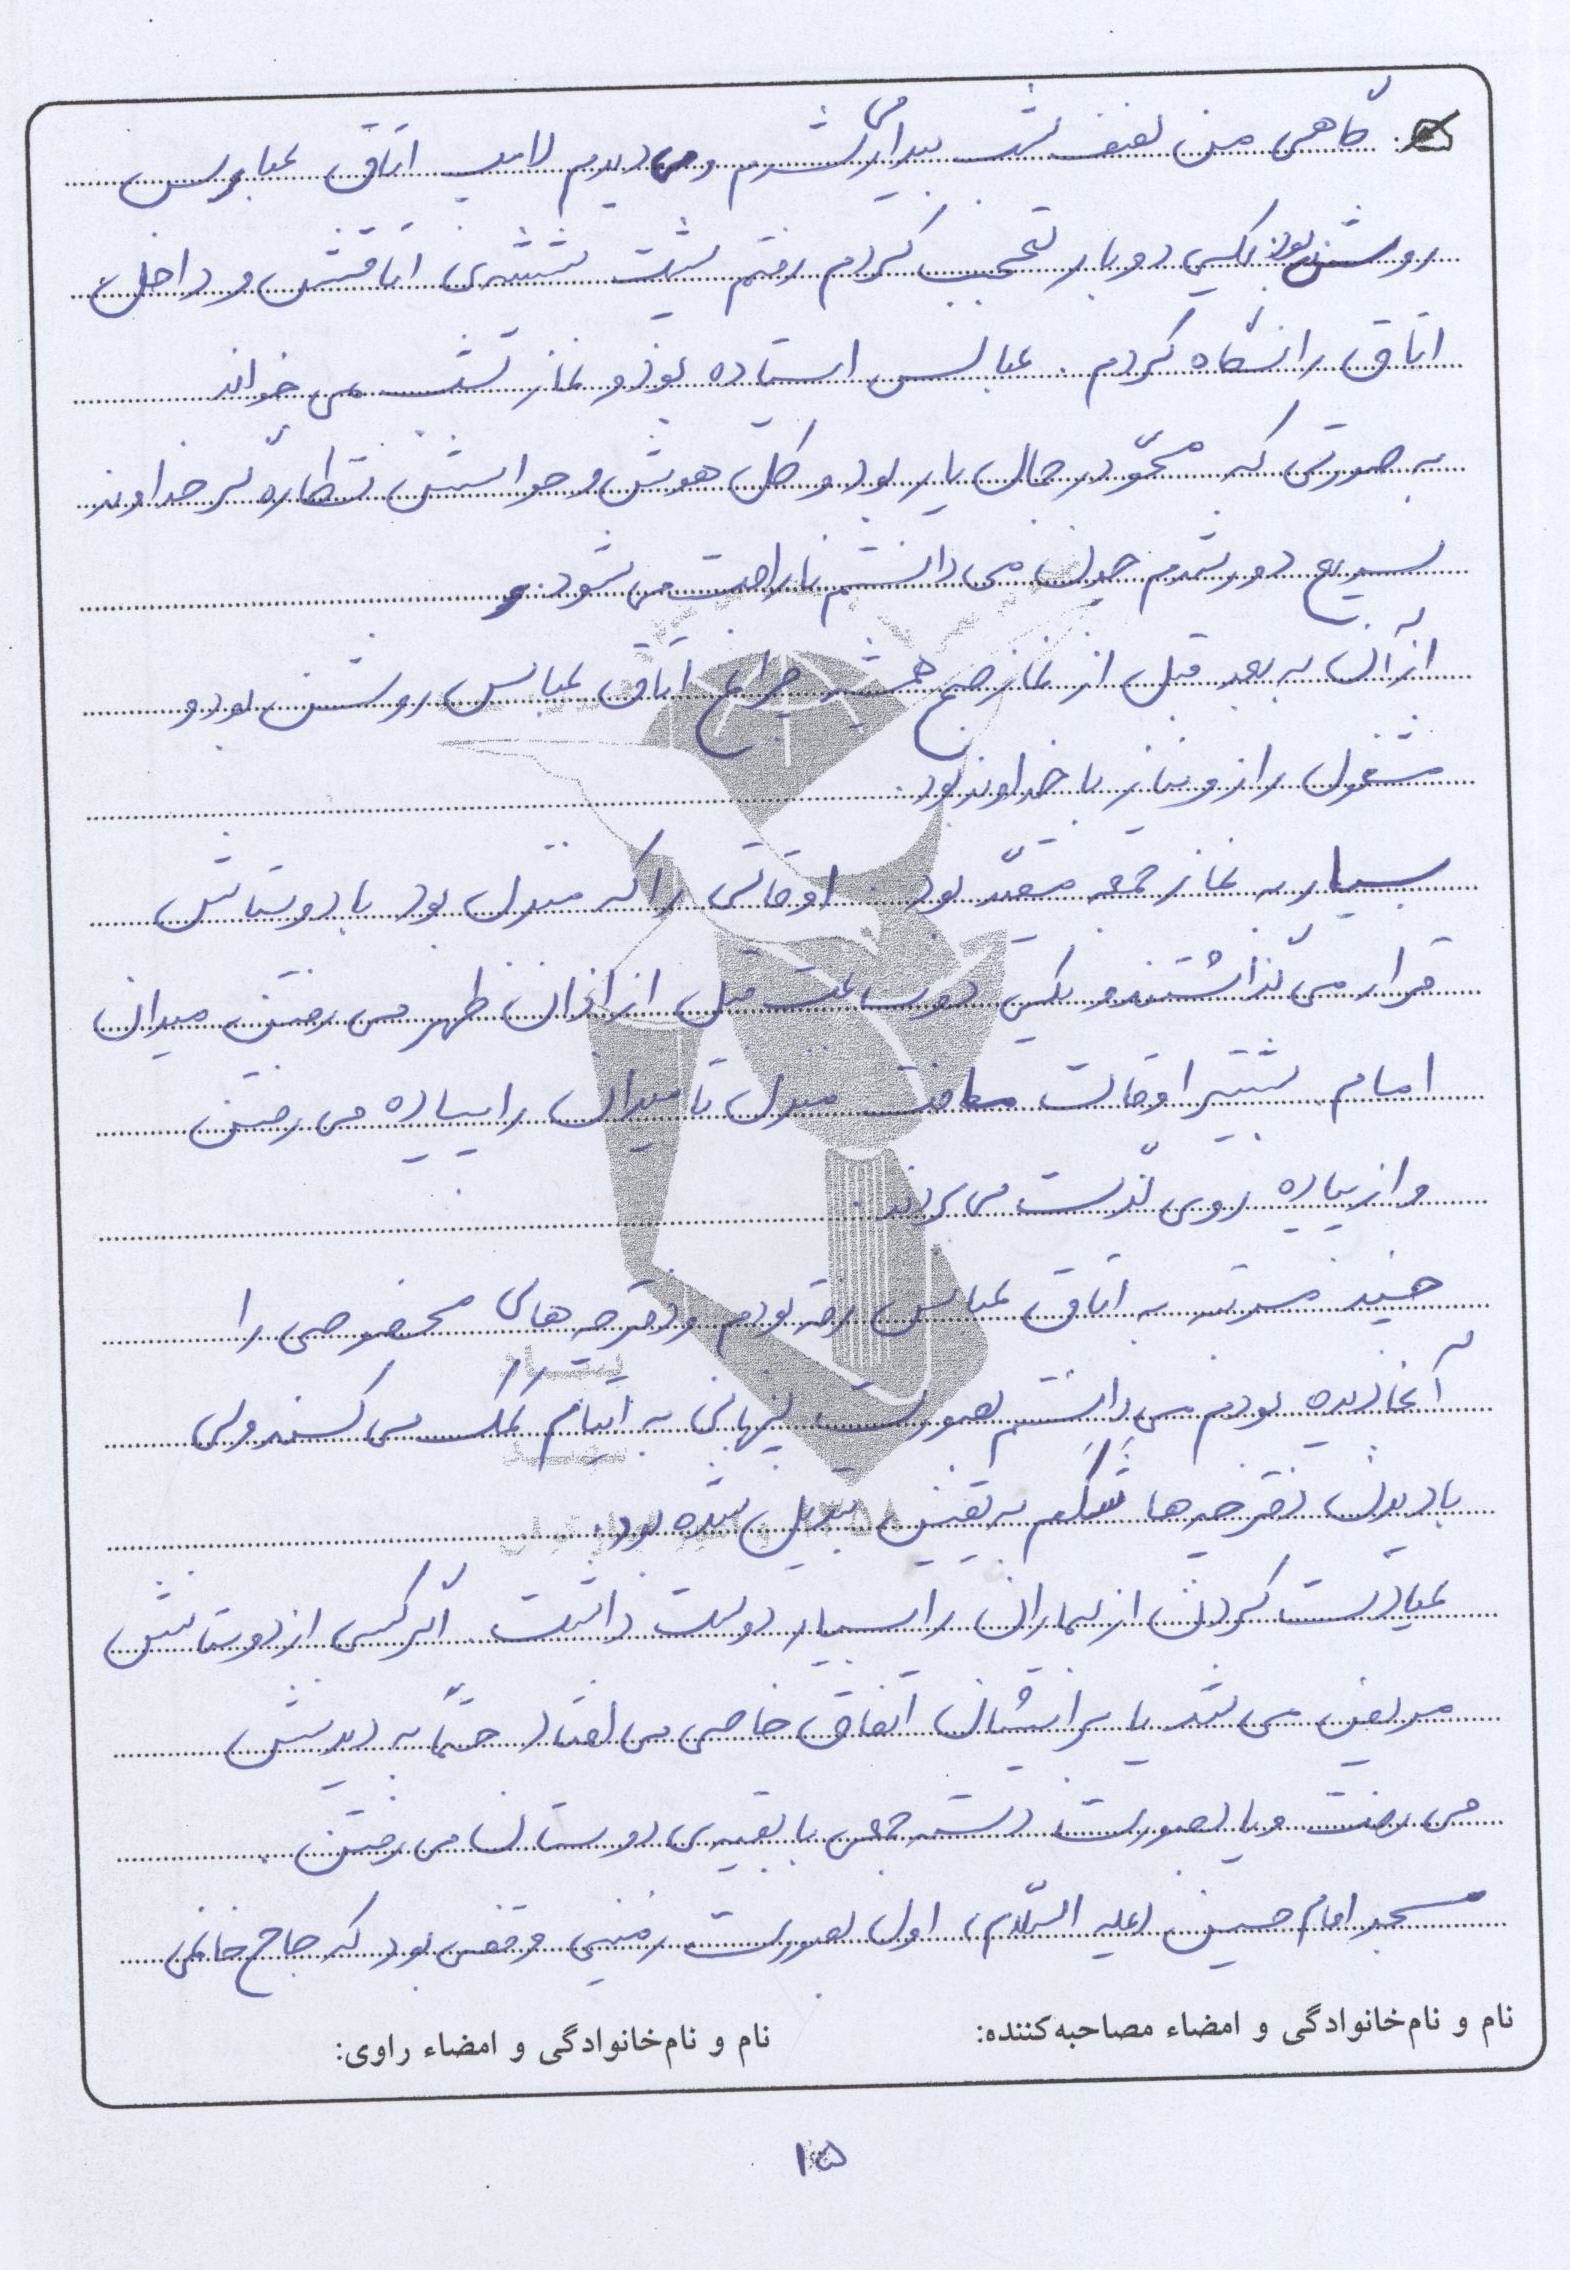 گاهی من نصف شب بیدار می‌شدم و می‌دیدم لامپ اتاق عباس
روشن بود یکی دو بار تعجب کردم رفتم پشت شیشه‌ی اتاقش و داخل
اتاق را نگاه کردم. عباس ایستاده بود و نماز شب می‌خواند
به صورتی که محوّ در جمال یار بود و کل هوش و حواسش نظاره‌گر خداوند
سریع دور شدم چون می‌دانستم ناراحت می‌شود.
از آن به بعد قبل از نماز صبح همیشه چراغ اتاق عباس روشن بود و
مشغول راز و نیاز با خداوند بود.
بسیار به نماز جمعه مقیّد بود. اوقاتی را که منزل بود با دوستانش
قرار می‌گذاشتند و یکی دو ساعت قبل از اذان ظهر می‌رفتن میدان
امام. بیشتر اوقات مسافت منزل تا میدان را پیاده می‌رفتن
و از پیاده روی لذّت می‌بردند.
چند مرتبه به اتاق عباس رفته بودم و دفترچه‌های مخصوصی را
آنجا دیده بودم می‌دانستم بصورت پنهانی به ایتام کمک می‌کند ولی
با دیدن دفترچه‌ها شکم به یقین تبدیل شده بود.
عیادت کردن از بیماران را بسیار دوست داشت. اگر کسی از دوستانش
مریض می‌شد یا برایشان اتفاق خاصی می‌افتاد حتماً به دیدنش
می‌رفت و یا بصورت دسته جمعی با بقیه‌ی دوستان می‌رفتن.
مسجد امام حسین (علیه السّلام) اول بصورت زمینی وقفی بود که حاج خانمی
نام و نام‌خانوادگی و امضاء مصاحبه‌کننده: نام و نام‌خانوادگی و امضاء راوی:
۱۵